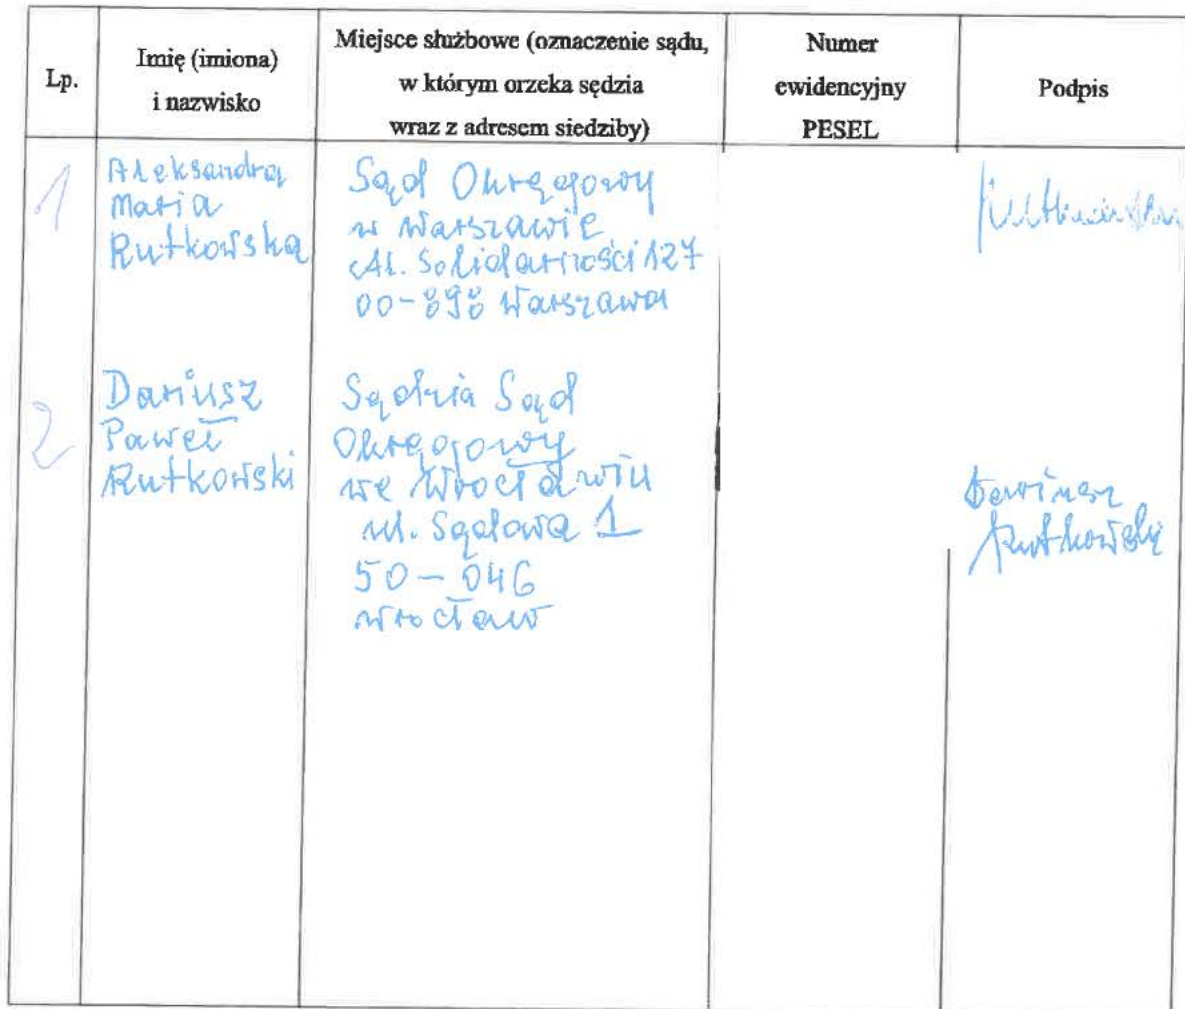 Lp.
Imię (imiona)
i nazwisko
Miejsce służbowe (oznaczenie sądu,
w którym orzeka sędzia
wraz z adresem siedziby)
Numer
ewidencyjny
PESEL
Podpis
1
Aleksandra
Maria
Rutkowska
Sąd Okręgowy
w Warszawie
Al. Solidarności 127
00-898 Warszawa
2
Dariusz
Paweł
Rutkowski
Sędzia Sąd
Okręgowy
we Wrocławiu
ul. Sądowa 1
50-046
Wrocław
Dariusz
Rutkowski